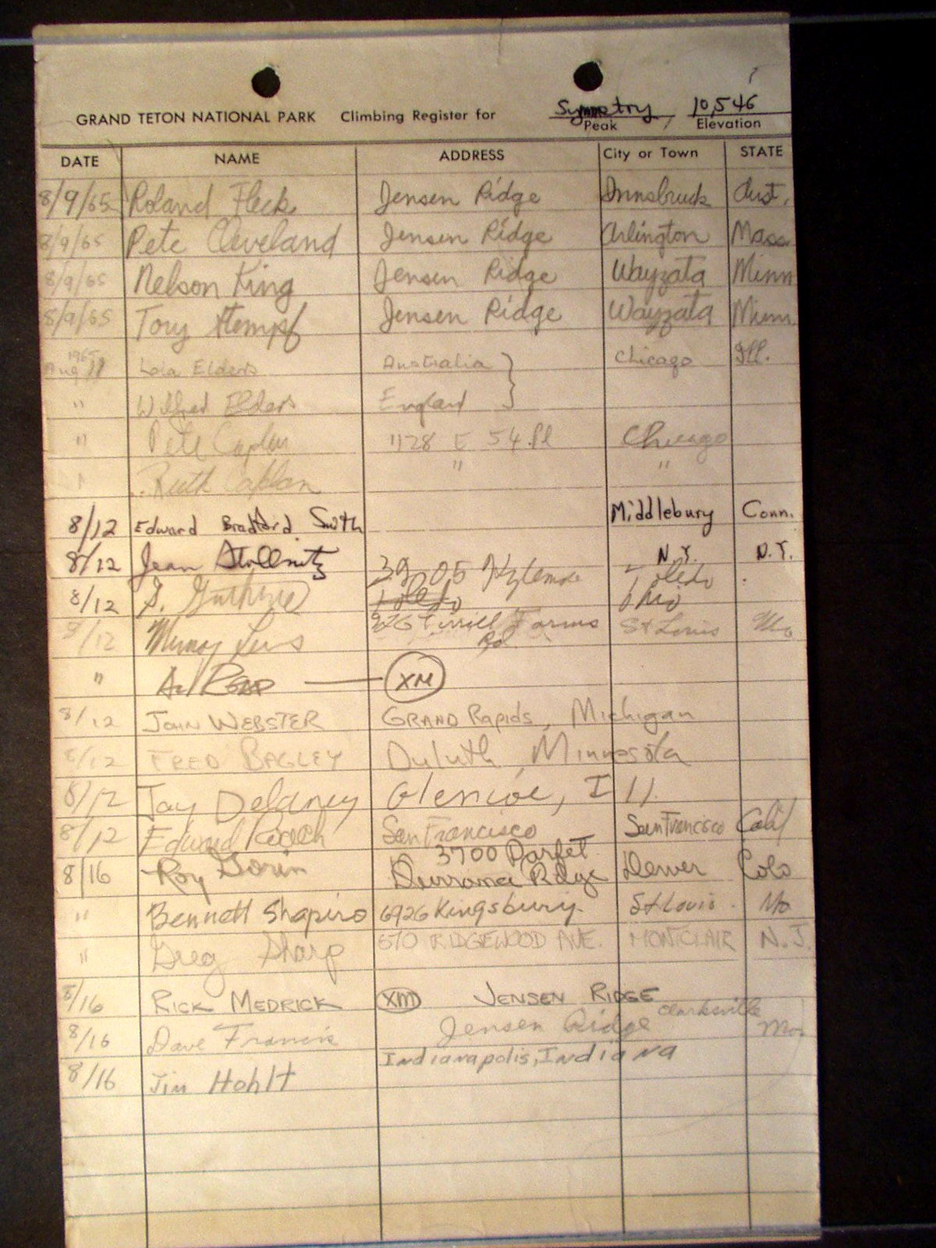 GRAND TETON NATIONAL PARK Climbing Register for Symmetry 10,546
Peak Elevation
DATE NAME ADDRESS City or Town STATE
8/9/65 Roland Fleck Jensen Ridge Innsbruck Aust.
8/9/65 Pete Cleveland Jensen Ridge Arlington Mass
8/9/65 Nelson King Jensen Ridge Wayzata Minn
8/9/65 Tony Jensen Ridge Wayzata Minn.
1965
Aug 11 Lola Elders Australia } Chicago Ill.
" Wilfred Elders England
" Pete Caplan 1128 E 54 Pl Chicago
" Ruth Caplan " "
8/12 Edward Bradford Smith Middlebury Conn.
8/12 Jean Stollnitz N.Y. N.Y.
8/12 S. Guthrie 3905 Toledo
Toledo Ohio
8/12 Murray 926 Tirrill Farms St Louis Mo
Rd
" Al Read — XM
8/12 JOHN WEBSTER GRAND Rapids, Michigan
8/12 FRED BAGLEY Duluth, Minnesota
8/12 Jay Delaney Glencoe, Ill.
8/12 Edward Roach San Francisco San Francisco Calif
3700 Parfet
8/16 Roy Gorin Durrance Ridge Denver Colo
" Bennett Shapiro 6926 Kingsbury St Louis. Mo
" Greg Sharp 670 RIDGEWOOD AVE. MONTCLAIR N.J.
8/16 RICK MEDRICK XM JENSEN RIDGE
8/16 Dave Francis Jensen Ridge Clarksville Mo.
Indianapolis, Indiana
8/16 Jim Hohlt